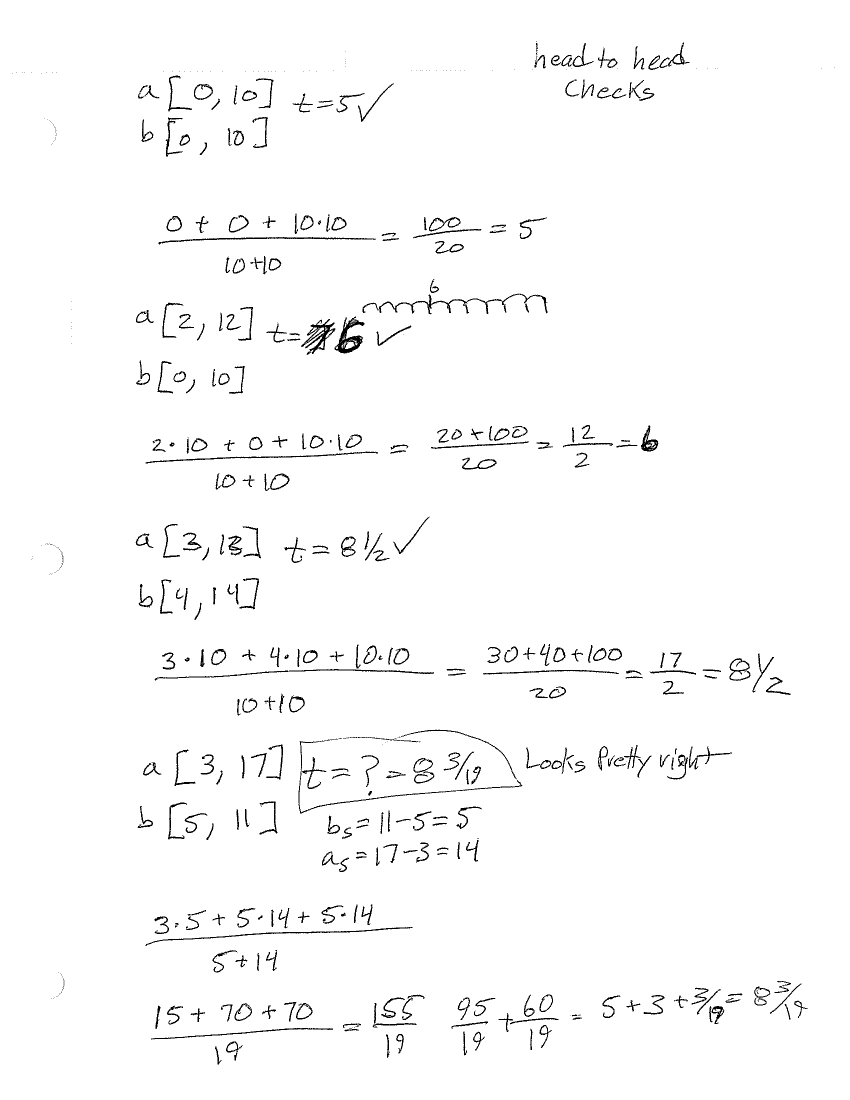 head to head
checks
a [0, 10] t=5✓
b [0, 10]
0 + 0 + 10·10 / 10+10 = 100/20 = 5
6
a [2, 12] t=6 ✓
b [0, 10]
2·10 + 0 + 10·10 / 10+10 = 20+100/20 = 12/2 = 6
a [3, 13] t=8 1/2 ✓
b [4, 14]
3·10 + 4·10 + 10·10 / 10+10 = 30+40+100/20 = 17/2 = 8 1/2
a [3, 17] t=?=8 3/19 Looks Pretty right
b [5, 11] bs=11-5=5
as=17-3=14
3·5 + 5·14 + 5·14 / 5+14
15 + 70 + 70 / 19 = 155/19 95/19 + 60/19 = 5+3+3/19 = 8 3/19